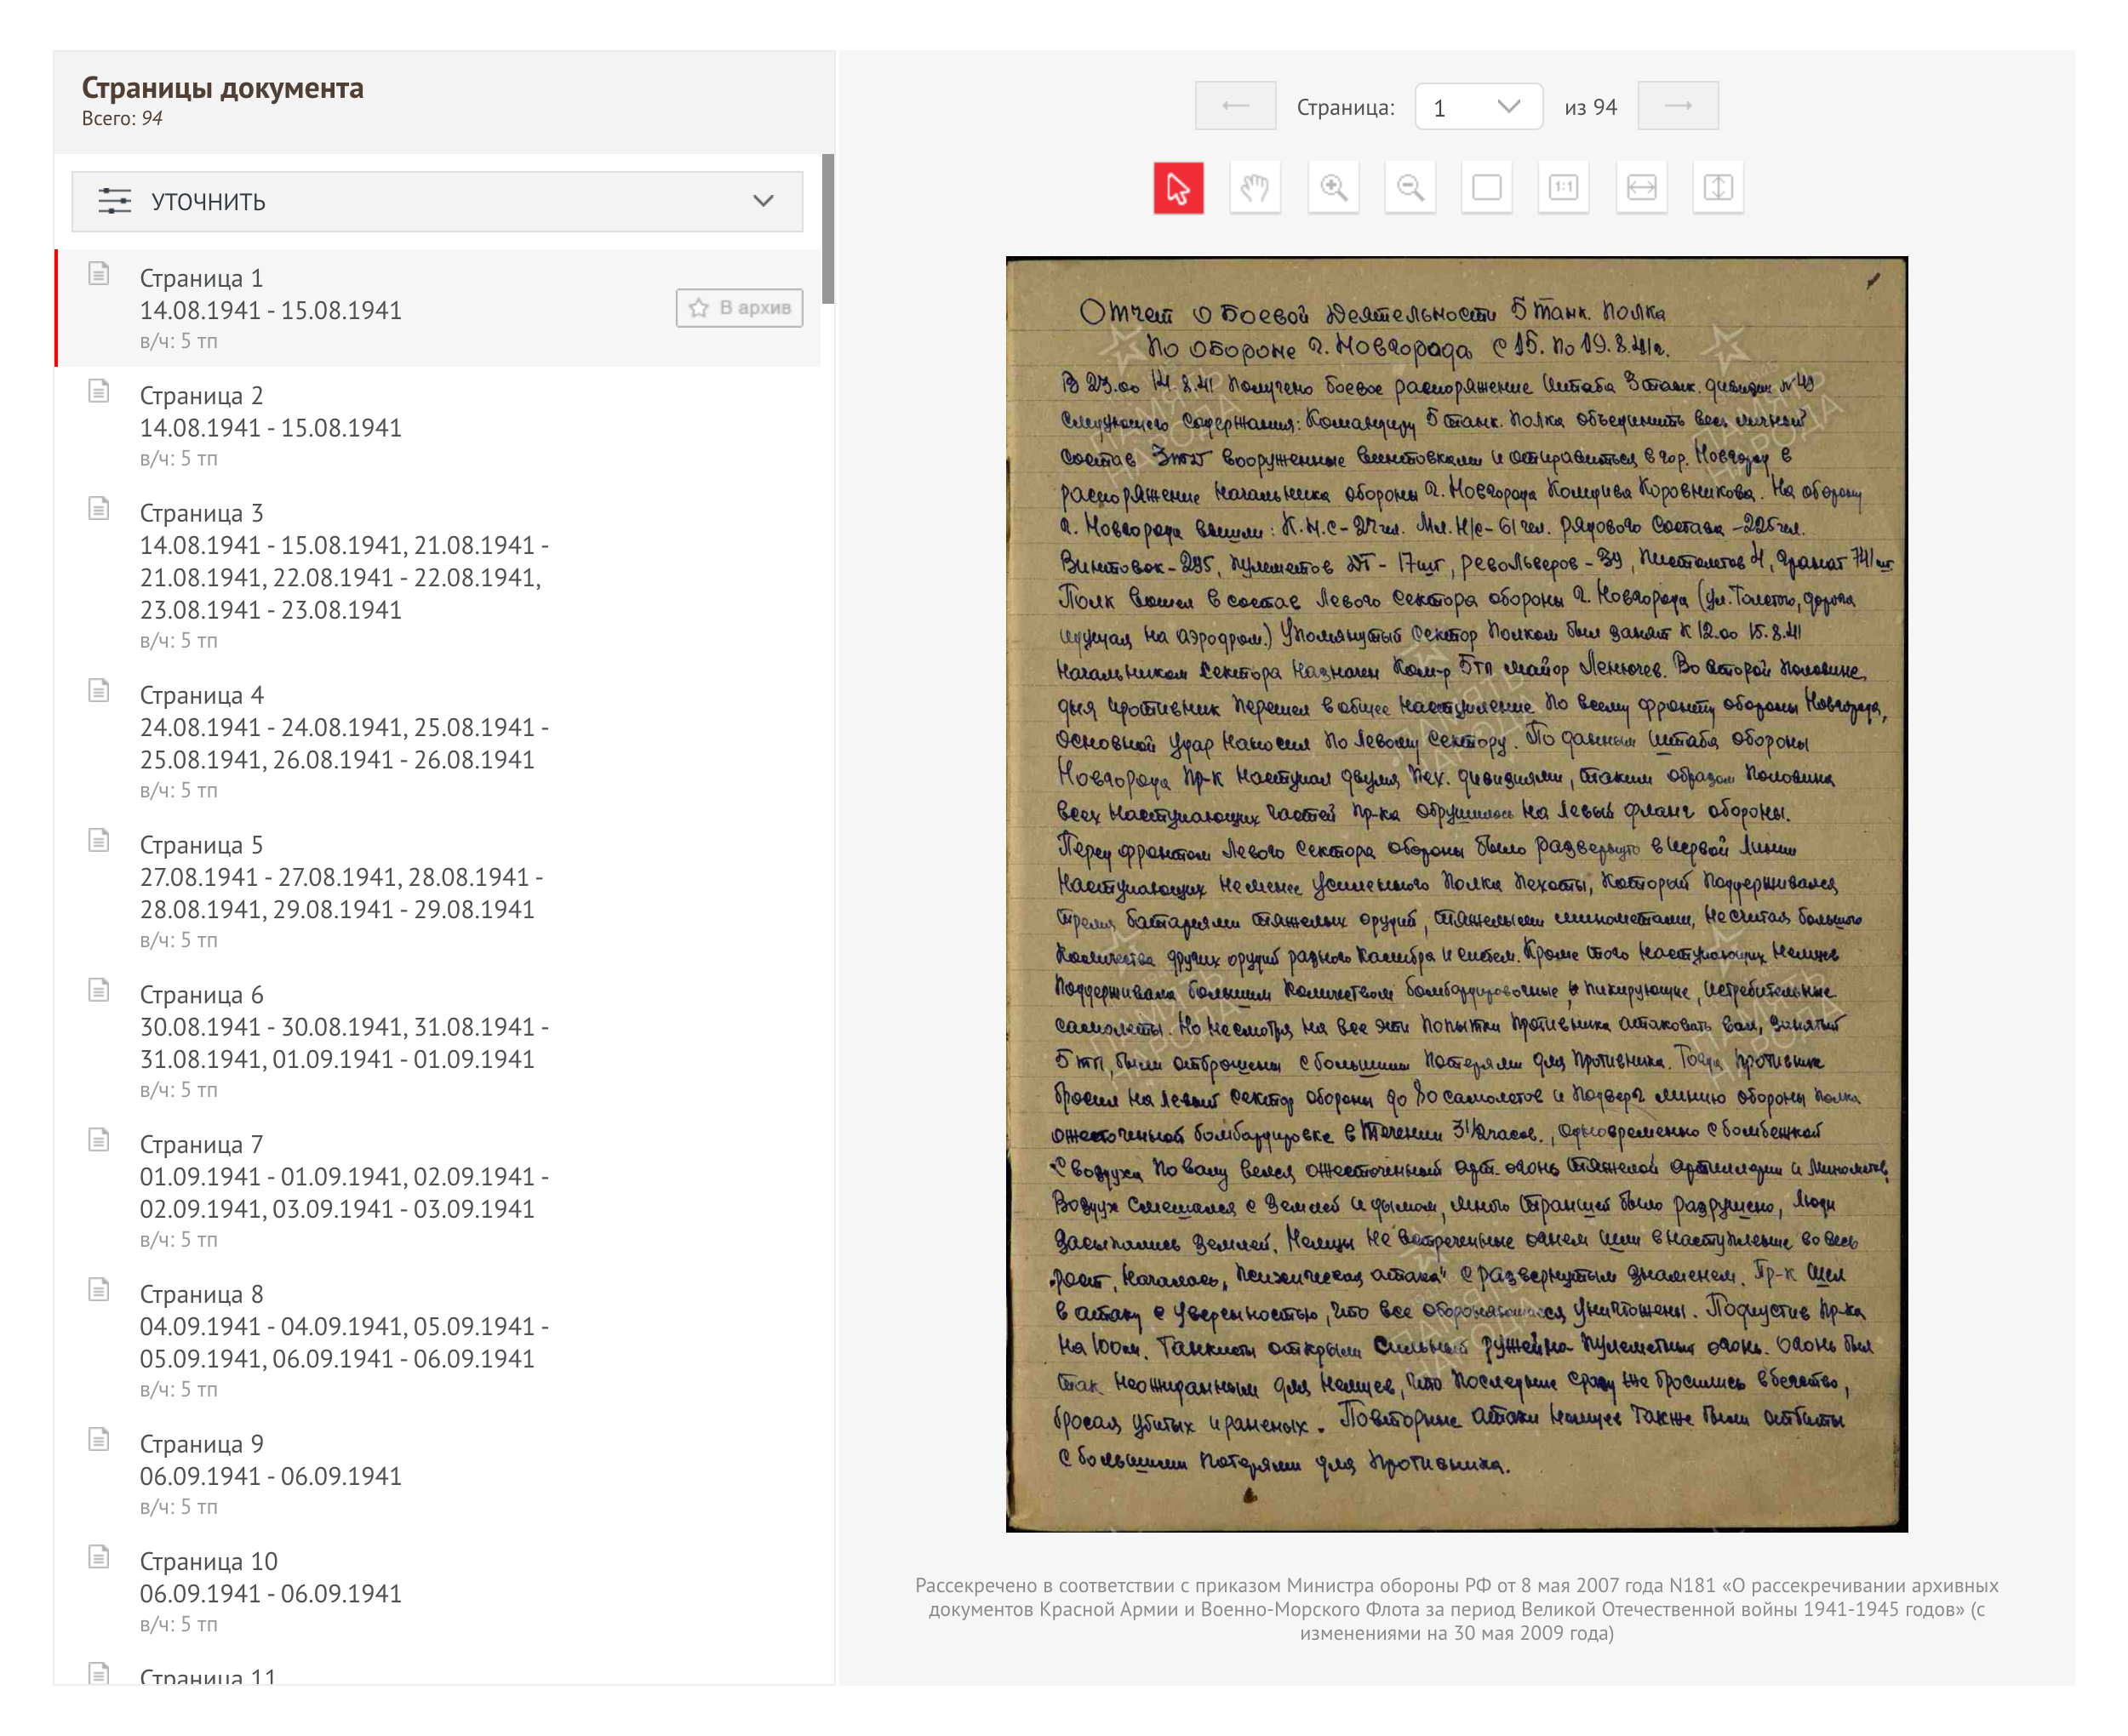 Страницы документа
Всего: 94
УТОЧНИТЬ
Страница 1
14.08.1941 - 15.08.1941
в/ч: 5 тп
В архив
Страница 2
14.08.1941 - 15.08.1941
в/ч: 5 тп
Страница 3
14.08.1941 - 15.08.1941, 21.08.1941 -
21.08.1941, 22.08.1941 - 22.08.1941,
23.08.1941 - 23.08.1941
в/ч: 5 тп
Страница 4
24.08.1941 - 24.08.1941, 25.08.1941 -
25.08.1941, 26.08.1941 - 26.08.1941
в/ч: 5 тп
Страница 5
27.08.1941 - 27.08.1941, 28.08.1941 -
28.08.1941, 29.08.1941 - 29.08.1941
в/ч: 5 тп
Страница 6
30.08.1941 - 30.08.1941, 31.08.1941 -
31.08.1941, 01.09.1941 - 01.09.1941
в/ч: 5 тп
Страница 7
01.09.1941 - 01.09.1941, 02.09.1941 -
02.09.1941, 03.09.1941 - 03.09.1941
в/ч: 5 тп
Страница 8
04.09.1941 - 04.09.1941, 05.09.1941 -
05.09.1941, 06.09.1941 - 06.09.1941
в/ч: 5 тп
Страница 9
06.09.1941 - 06.09.1941
в/ч: 5 тп
Страница 10
06.09.1941 - 06.09.1941
в/ч: 5 тп
Страница 11
Страница: 1 из 94
1:1
Отчет о боевой деятельности 5 танк. полка
по обороне г. Новгорода с 15. по 19.8.41г.
В 23.00 14.8.41 получено боевое распоряжение штаба 3 танк. дивизии №49
следующего содержания: Командиру 5 танк. полка объединить весь личный
состав 3тд вооруженные винтовками и отправиться в гор. Новгород в
распоряжение начальника обороны г. Новгорода Комдива Коровникова. На оборону
г. Новгорода вышли: К.Н.С - 27 чел. Мл. Н/С - 61 чел. рядового состава - 225 чел.
Винтовок - 295, пулеметов ДТ - 17 шт, револьверов - 39, пистолетов 4, гранат 741 шт.
Полк вошел в состав левого сектора обороны г. Новгорода (ул. Толстого, дорога
идущая на аэродром.) Упомянутый сектор полком был занят к 12.00 15.8.41
Начальником сектора назначен Ком-р 5тп майор Во второй половине
дня противник перешел в общее наступление по всему фронту обороны Новгорода,
основной удар наносил по левому сектору. По данным штаба обороны
Новгорода пр-к наступал двумя пех. дивизиями, таким образом половина
всех наступающих частей пр-ка обрушилось на левый фланг обороны.
Перед фронтом левого сектора обороны было развернуто в первой линии
наступающих не менее усиленного полка пехоты, который поддерживался
тремя батареями тяжелых орудий, тяжелыми минометами, не считая большого
количества других орудий разного калибра и систем. Кроме того наступающих немцев
поддерживала большим количеством бомбардировочные и пикирующие, истребительные
самолеты. Но несмотря на все эти попытки противника атаковать вал, занятый
5 тп, были отброшены с большими потерями для противника. Тогда противник
бросил на левый сектор обороны до 80 самолетов и подверг линию обороны полка
ожесточенной бомбардировке в течении 3 1/2 часов., одновременно с бомбежкой
с воздуха по валу велся ожесточенный арт. огонь тяжелой артиллерии и минометов.
Воздух смешался с землей и дымом, много траншей было разрушено, люди
засыпались землей. Немцы не встреченные огнем шли в наступление во весь
рост. Началась „психическая атака" с развернутым знаменем. Пр-к шел
в атаку с уверенностью, что все обороняющиеся уничтожены. Подпустив пр-ка
на 100 м. танкисты открыли сильный ружейно пулеметный огонь. Огонь был
так неожиданным для немцев, что последние сразу же бросились в бегство,
бросая убитых и раненых. Повторные атаки немцев также были отбиты
с большими потерями для противника.
ПАМЯТЬ НАРОДА
Рассекречено в соответствии с приказом Министра обороны РФ от 8 мая 2007 года N181 «О рассекречивании архивных
документов Красной Армии и Военно-Морского Флота за период Великой Отечественной войны 1941-1945 годов» (с
изменениями на 30 мая 2009 года)